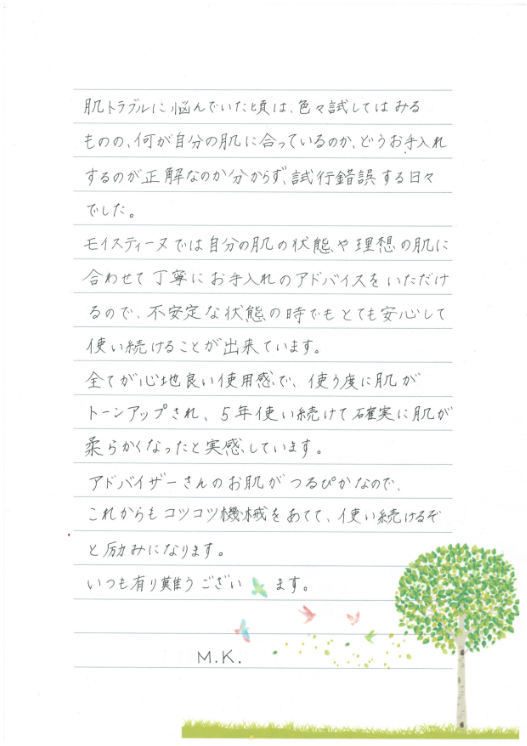 肌トラブルに悩んでいた頃は、色々試してはみる
ものの、何が自分の肌に合っているのか、どうお手入れ
するのが正解なのか分からず、試行錯誤する日々
でした。
モイスティーヌでは自分の肌の状態や理想の肌に
合わせて丁寧にお手入れのアドバイスをいただけ
るので、不安定な状態の時でもとても安心して
使い続けることが出来ています。
全てが心地良い使用感で、使う度に肌が
トーンアップされ、5年使い続けて確実に肌が
柔らかくなったと実感しています。
アドバイザーさんのお肌がつるぴかなので、
これからもコツコツ機械をあてて、使い続けるぞ
と励みになります。
いつも有り難うございます。
M.K.